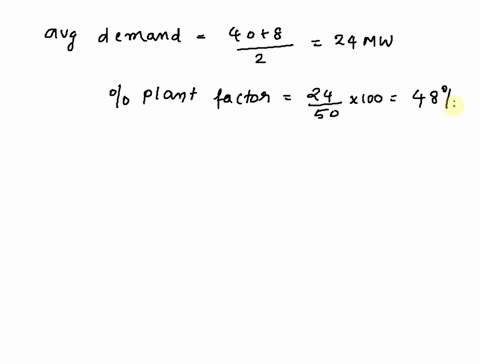 avg demand = 40+8/2 = 24 MW
% plant factor = 24/50 x100 = 48%